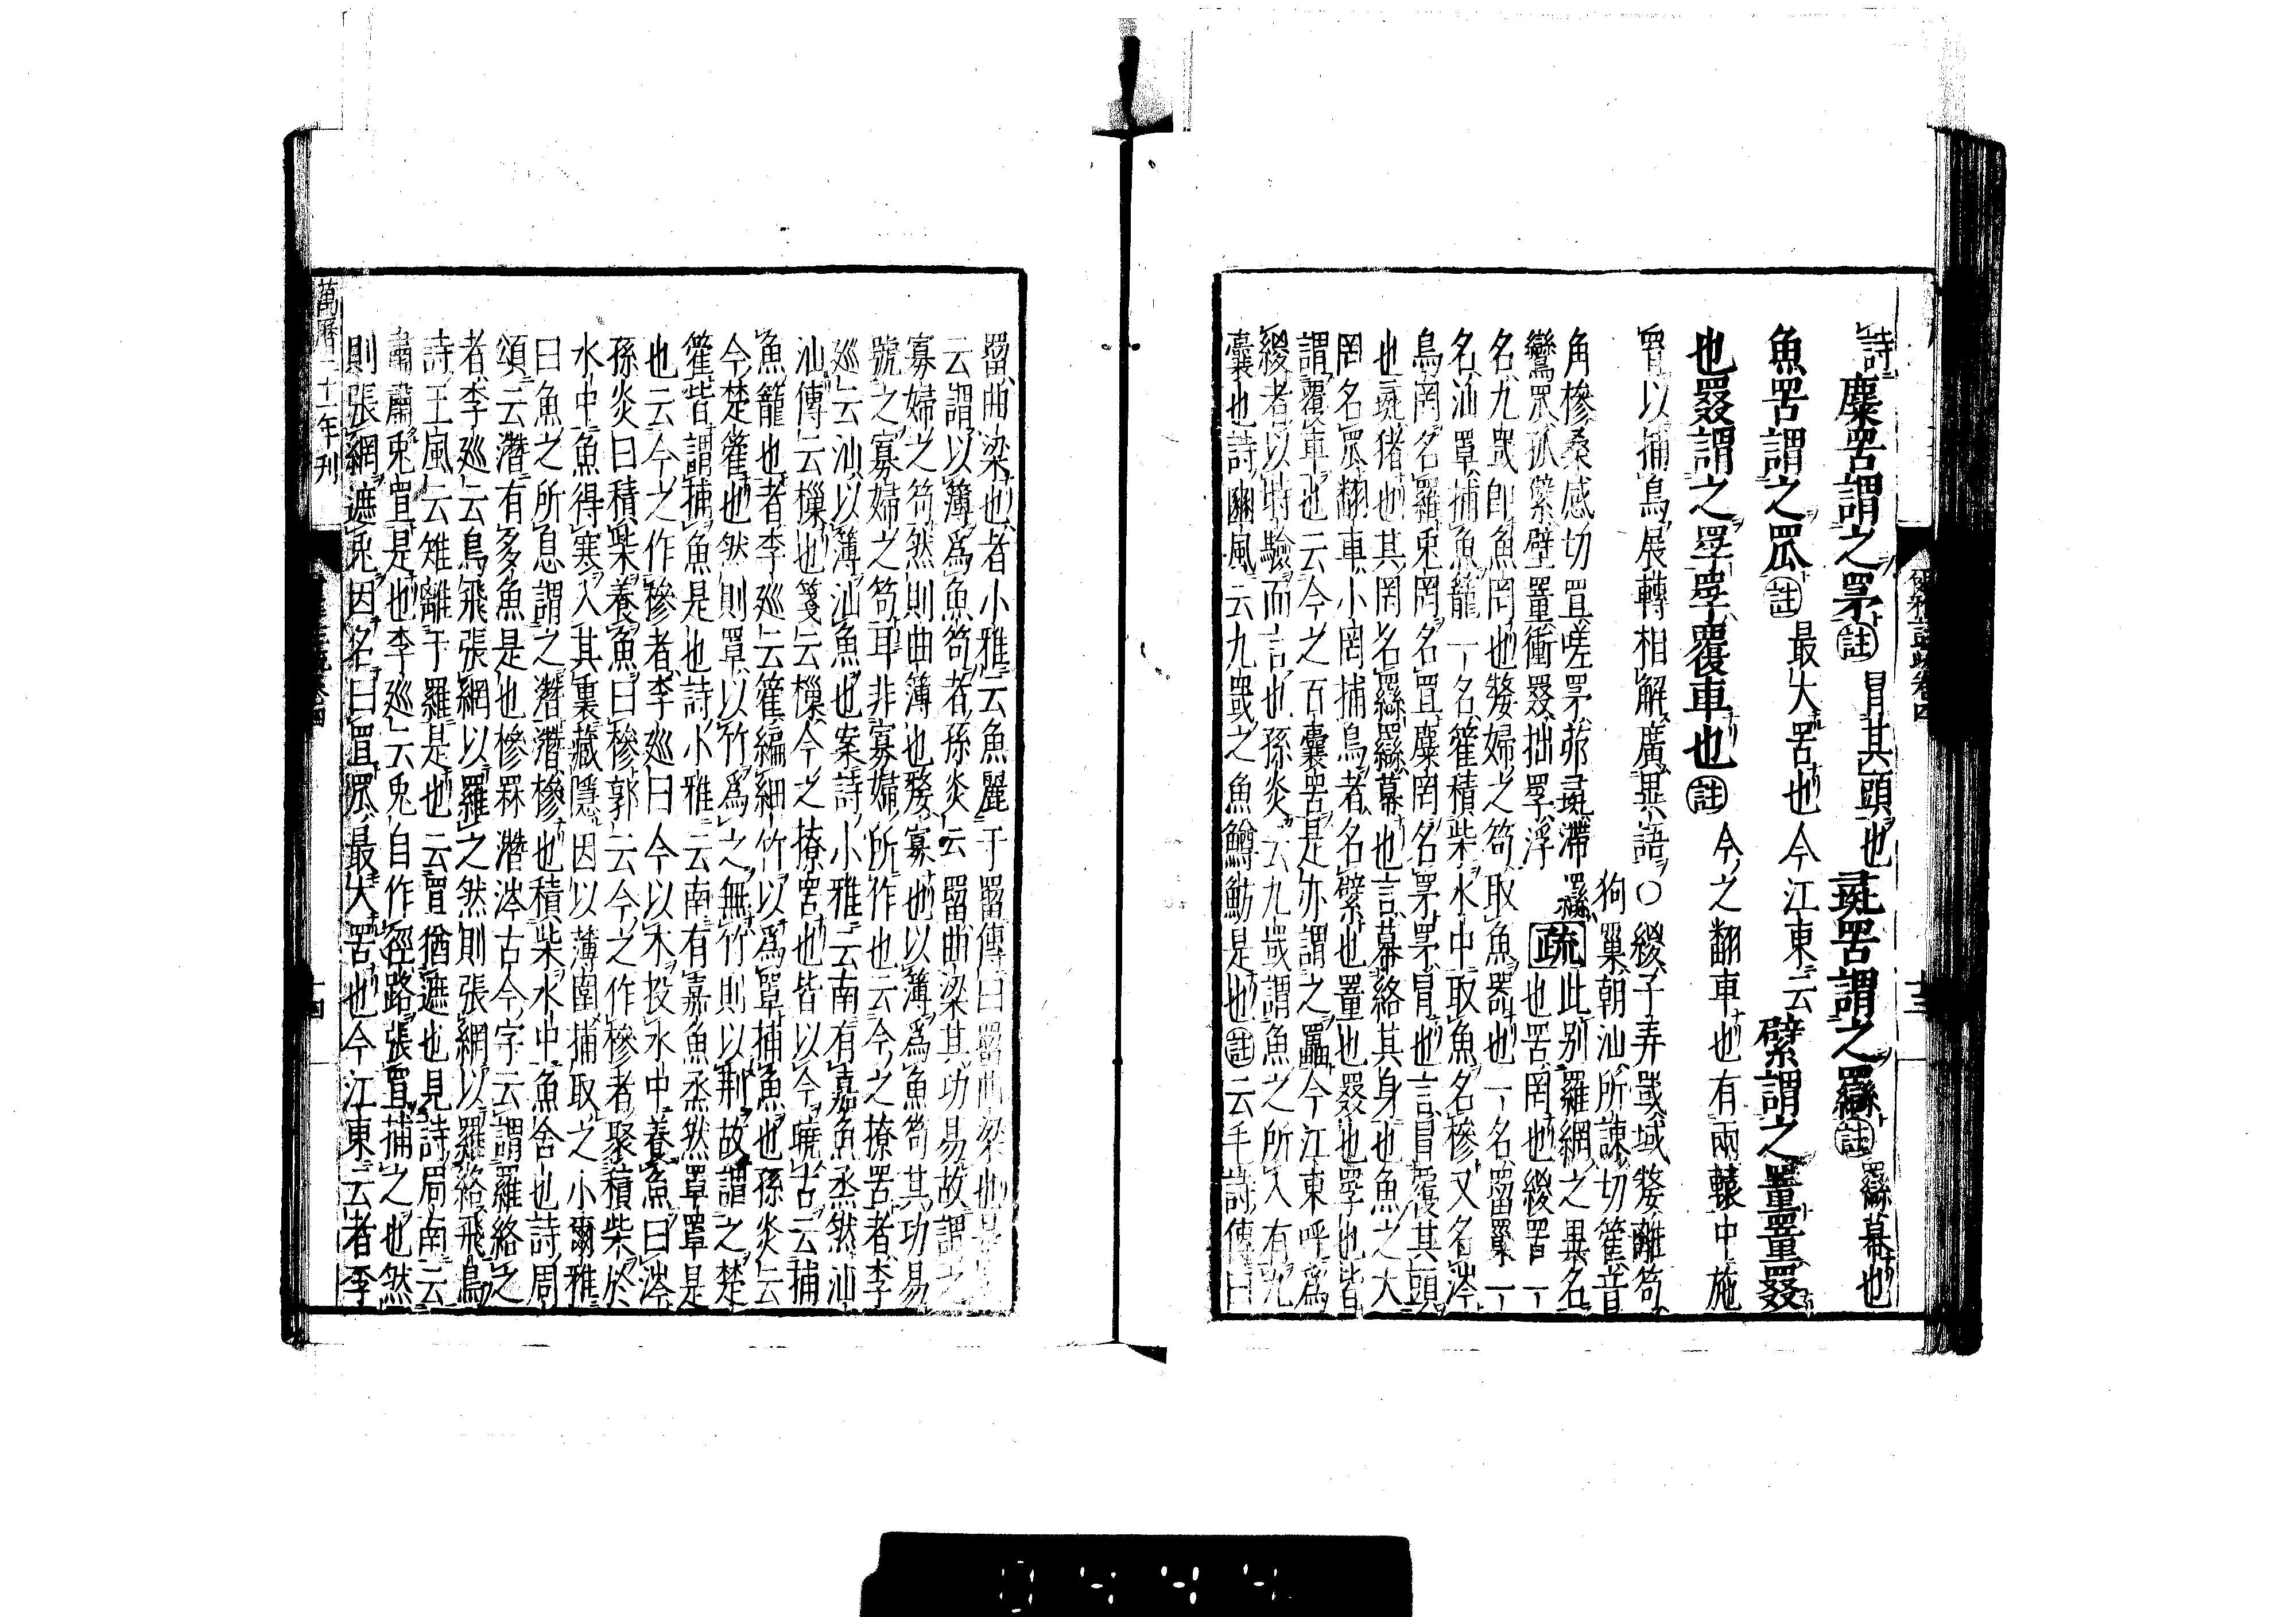 詩麋罟謂之罞註冒其頭也彘罟謂之羉註羉幕也
魚罟謂之罛註最大罟也今江東云繴謂之罿罿罬
也罬謂之罦罦覆車也註今之翻車也有兩轅中施
罥以捕鳥展轉相解廣異語〇緵子弄罭域嫠離笱
狗罺朝汕所諫切篧音
角槮桑感切罝嗟罞茆彘滯羉
鸞罛孤繴壁罿衝罬拙罦浮疏此别羅網之異名
也罟罔也緵罟一
名九罭即魚罔也嫠婦之笱取魚器也一名罶罺一
名汕罩捕魚籠一名篧積柴水中取魚名槮又名涔
鳥罔名羅兎罔名罝麋罔名罞罞冒也言冒覆其頭
也彘猪也其罔名羉羉幕也言幕絡其身也魚之大
罔名罛翻車小罔捕鳥者名繴也罿也罬也罦也皆
謂覆車也云今之百囊罟是亦謂之䍡今江東呼爲
緵者以時驗而言也孫炎云九罭謂魚之所入有九
囊也詩豳風云九罭之魚鱒魴是也註云毛詩傳曰
罶曲梁也者小雅云魚麗于罶傳曰罶曲梁也是
云謂以簿爲魚笱者孫炎云罶曲梁其功易故謂之
寡婦之笱然則曲簿也嫠寡也以簿爲魚笱其功易
號之寡婦之笱耳非寡婦所作也云今之撩罟者李
廵云汕以薄汕魚也案詩小雅云南有嘉魚烝然汕
汕傳云樔也箋云樔今之撩罟也皆以今曉古云捕
魚籠也者李廵云篧編細竹以爲罩捕魚也孫炎云
今楚篧也然則罩以竹爲之無竹則以荆故謂之楚
篧皆謂捕魚是也詩小雅云南有嘉魚烝然罩罩是
也云今之作槮者李廵曰今以木投水中養魚曰涔
孫炎曰積柴養魚曰槮郭云今之作槮者聚積柴於
水中魚得寒入其裏藏隱因以薄圍捕取之小爾雅
曰魚之所息謂之濳濳槮也積柴水中魚舍也詩周
頌云濳有多魚是也槮罧濳涔古今字云謂羅絡之
者李廵云鳥飛張網以羅之然則張網以羅絡飛鳥
詩王風云雉離于羅是也云罝猶遮也見詩周南云
肅肅兎罝是也李廵云兎自作徑路張罝捕之也然
則張網遮兎因名曰罝罛最大罟也今江東云者李
萬曆二十一年刋